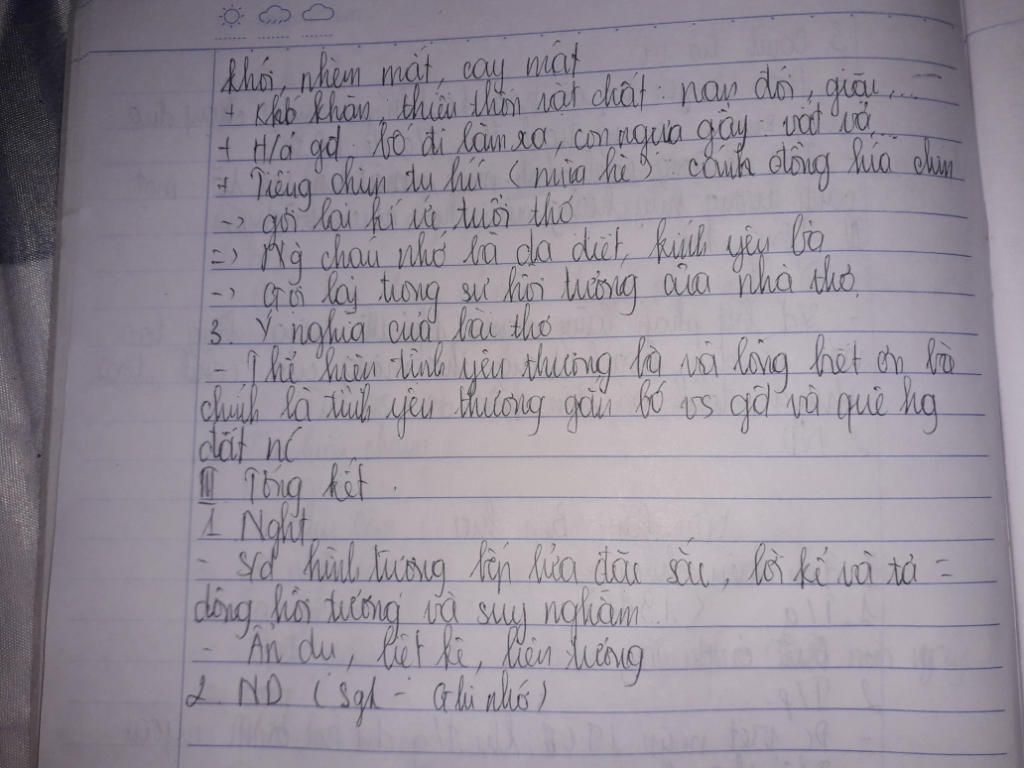 khói, nhèm mắt, cay mắt
+ Khó khăn, thiếu thốn vật chất: nạn đói, giặc,...
+ H/ả gđ: bố đi làm xa, con ngựa gầy: vất vả
+ Tiếng chim tu hú (mùa hè): cánh đồng lúa chín
-> gợi lại kí ức tuổi thơ
=> Ng cháu nhớ bà da diết, kính yêu bà
-> Gợi lại trong sự hồi tưởng của nhà thơ.
3. Ý nghĩa của bài thơ
- Thể hiện tình yêu thương bà và lòng biết ơn bà
chính là tình yêu thương gắn bó vs gđ và quê hg
đất nc
III Tổng kết.
1 Nghịt
- s/d hình tượng bếp lửa đặc sắc, lời kể và tả =
dòng hồi tưởng và suy ngẫm.
- Ẩn dụ, liệt kê, liên tưởng
2. ND (sgk - Ghi nhớ)